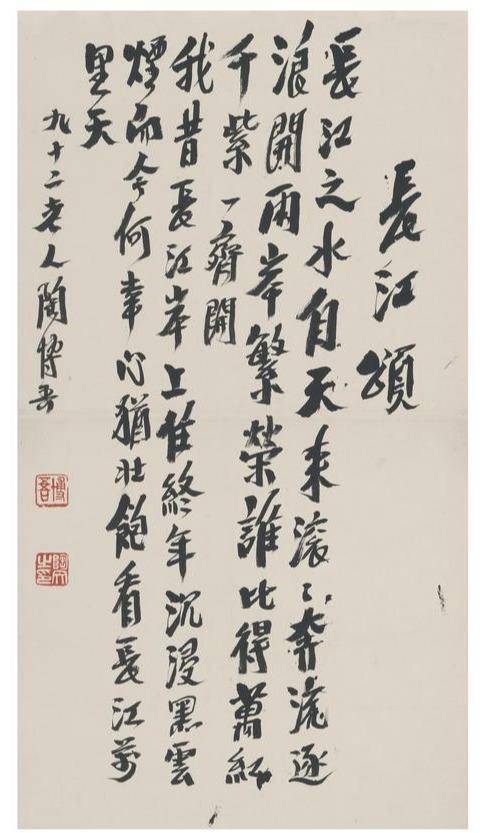 長江頌
長江之水自天來滾〻奔流逐
浪開兩岸繁榮誰比得萬紅
千紫一〻齊開
我昔長江岸上住終年沉浸黑雲
煙而今何幸心猶壯飽看長江萬
里天
九十二老人陶博吾
博吾